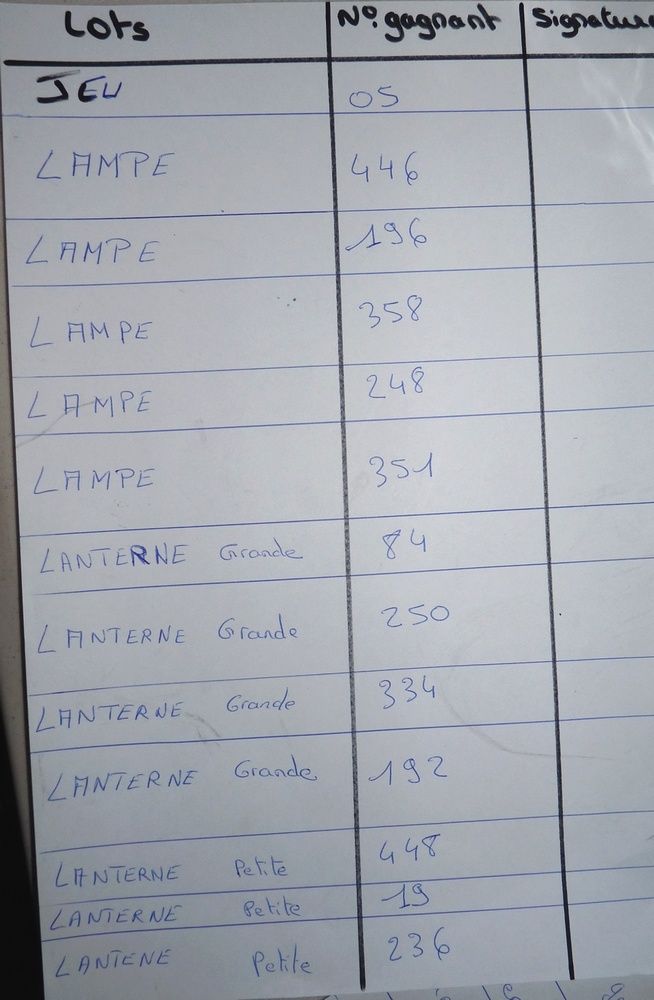 Lots N°. gagnant Signature
JEU 05
LAMPE 446
LAMPE 196
LAMPE 358
LAMPE 248
LAMPE 351
LANTERNE Grande 84
LANTERNE Grande 250
LANTERNE Grande 334
LANTERNE Grande 192
LANTERNE Petite 448
LANTERNE Petite 19
LANTENE Petite 236